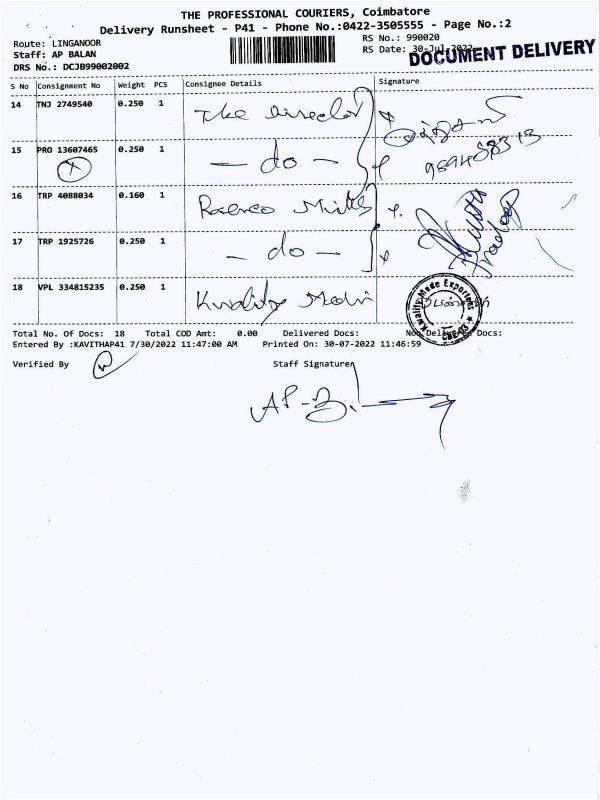 THE PROFESSIONAL COURIERS, Coimbatore
Delivery Runsheet - P41 - Phone No.:0422-3505555 - Page No.:2
Route: LINGANOOR
RS No.: 990020
Staff: AP BALAN
RS Date: 30-Jul-2022
DOCUMENT DELIVERY
DRS No.: DCJB99002002
S No Consignment No Weight PCS Consignee Details Signature
14 TNJ 2749540 0.250 1 The Director
15 PRO 13607465 0.250 1 - do -
16 TRP 4088034 0.160 1
17 TRP 1925726 0.250 1 - do -
18 VPL 334815235 0.250 1 Kwality
Kwality Made Exporters
Total No. Of Docs: 18 Total COD Amt: 0.00 Delivered Docs: Non Delivered Docs:
Entered By :KAVITHAP41 7/30/2022 11:47:00 AM Printed On: 30-07-2022 11:46:59
Verified By Staff Signature